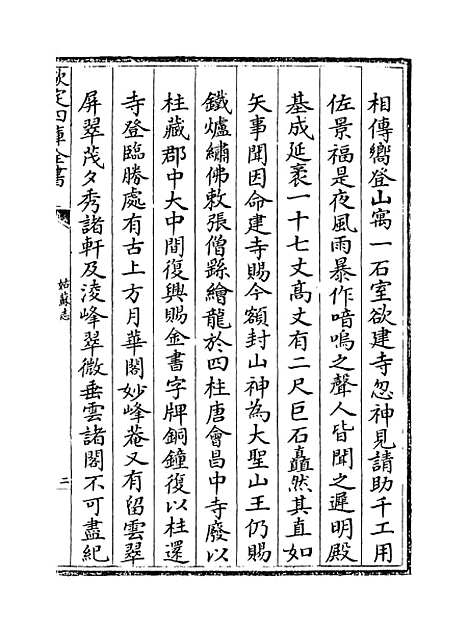 相傳嚮登山寓一石室欲建寺忽神見請助千工用
佐景福是夜風雨暴作喑嗚之聲人皆聞之遲明殿
基成延袤一十七丈髙丈有二尺巨石矗然其直如
矢事聞因命建寺賜今額封山神為大聖山王仍賜
鐵爐繡佛敕張僧繇繪龍於四柱唐㑹昌中寺廢以
柱藏郡中大中間復興賜金書字牌銅鐘復以柱還
寺登臨勝處有古上方月華閣妙峰菴又有留雲翠
屏翠茂夕秀諸軒及淩峰翠微垂雲諸閣不可盡紀
欽定四庫全書
姑蘇志
三